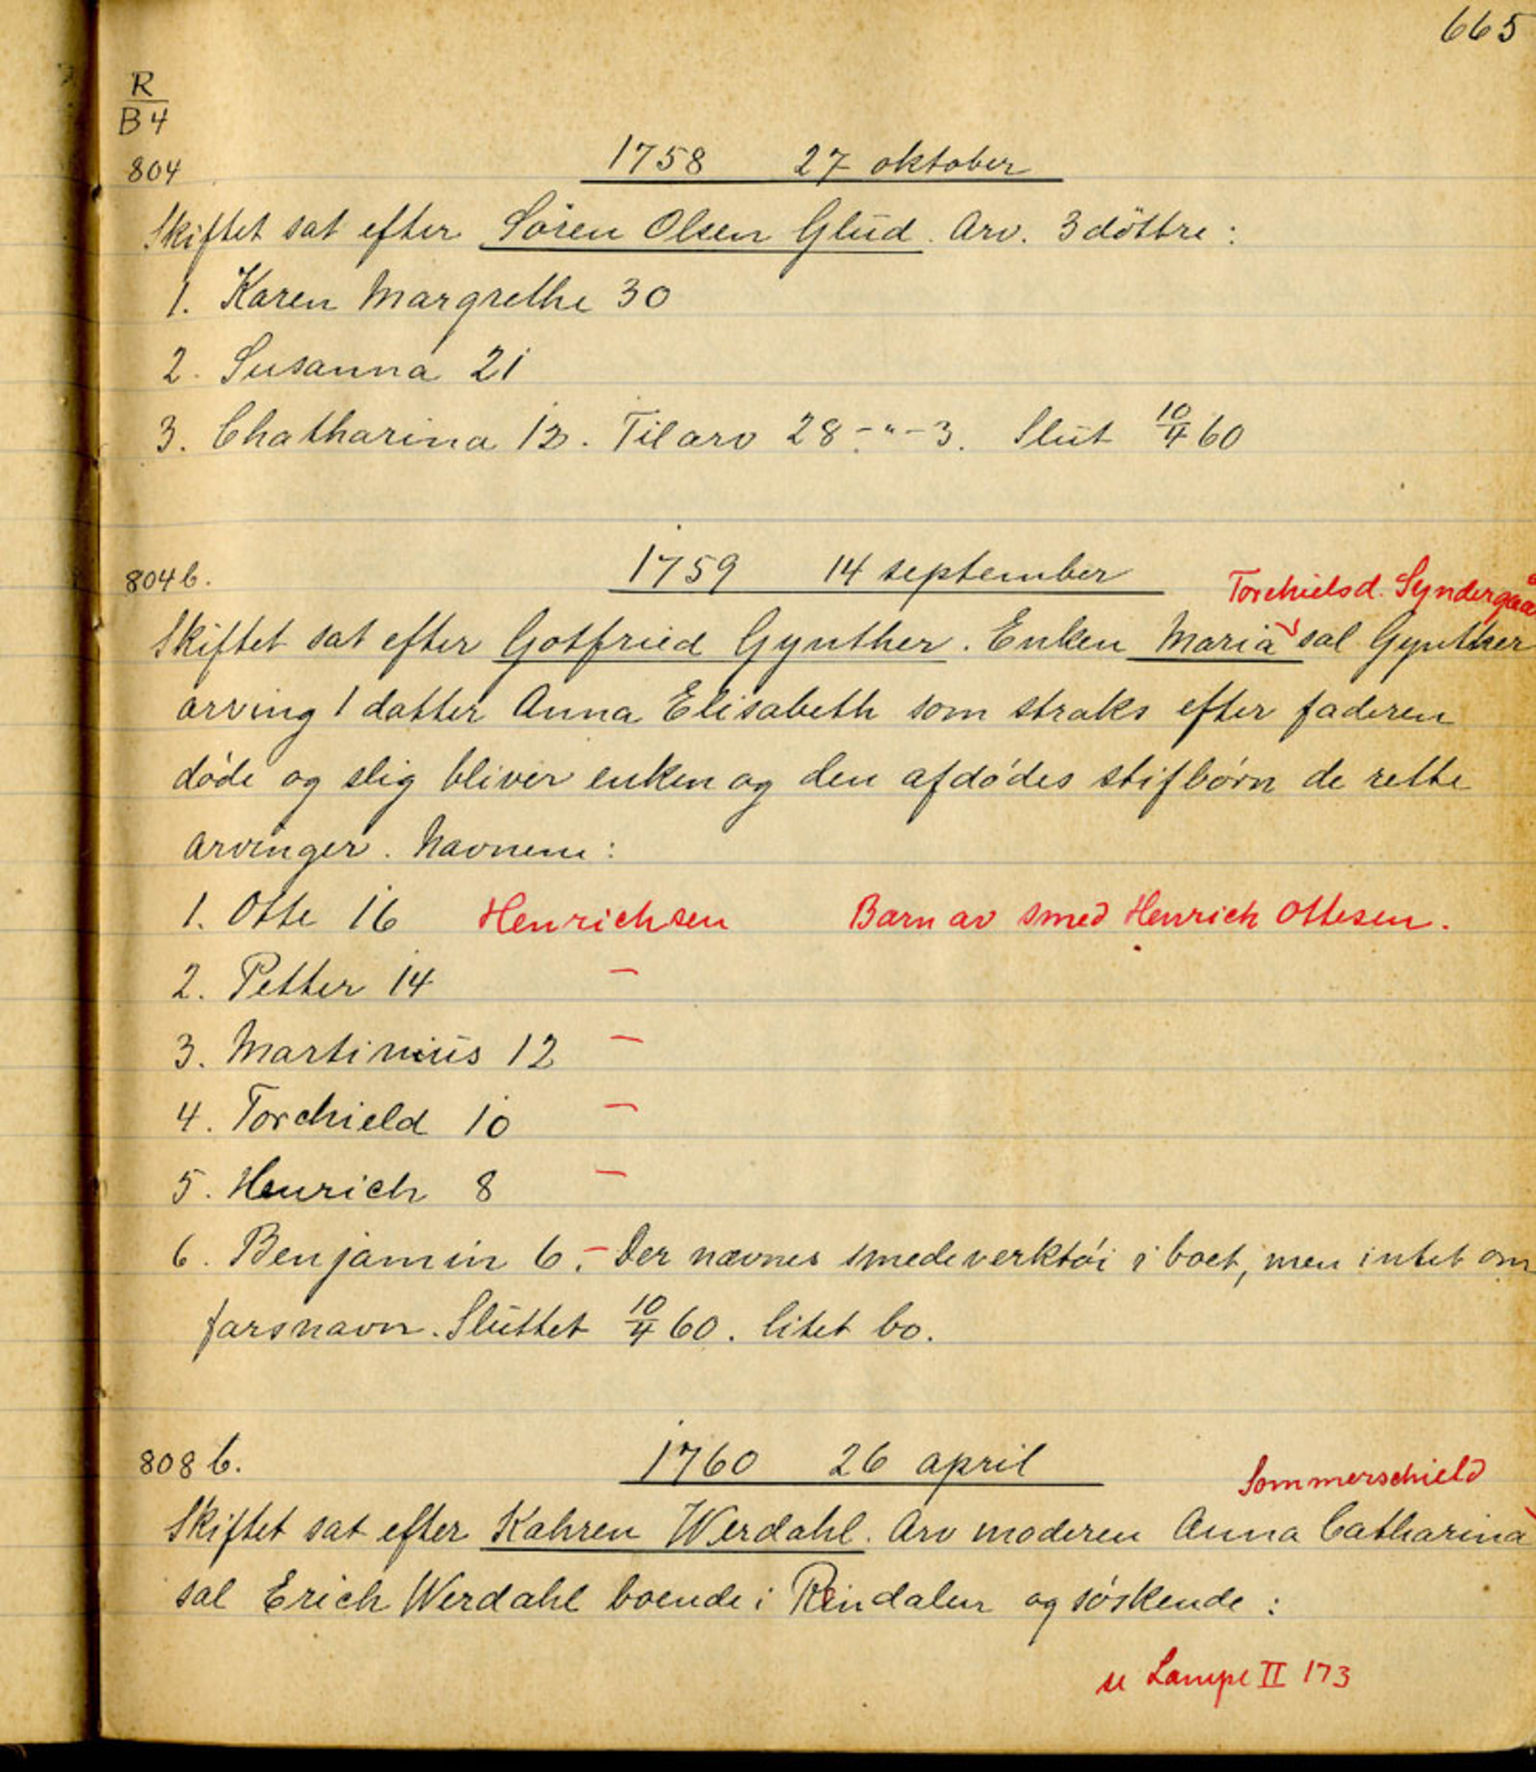 665
R
B4
804
1758 27 oktober
Skiftet sat efter Sören Olsen Glud. Arv. 3 döttre:
1. Karen Margrethe 30
2. Susanna 21
3. Chatharina 12. Tilarv 28-"-3. Slut 10/4 60
804b.
1759 14 september
Torchielsd. Syndergaa
Skiftet sat efter Gotfried Gynther. Enken Maria sal Gynther
arving 1 datter Anna Elisabeth som straks efter faderen
døde og slig bliver enken og den afdødes stifbørn de rette
arvinger. Navnene:
1. Otte 16 Henrichsen Barn av smed Henrich Ottesen.
2. Petter 14 —
3. Martinius 12 —
4. Torchield 10 —
5. Henrich 8 —
6. Benjamin 6. — Der nævnes smedeverktøi i boet, men intet om
farsnavn. Sluttet 10/4 60. litet bo.
808 b.
1760 26 april
Sommerschield
Skiftet sat efter Kahren Werdahl. Arv moderen Anna Catharina
sal Erich Werdahl boende i Rindalen og søskende:
se Lampe II 173